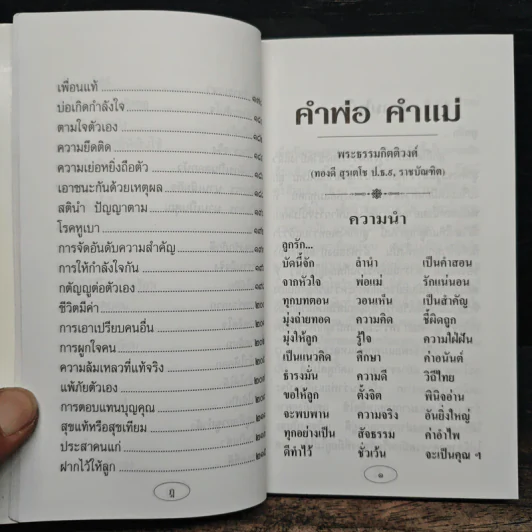 เพื่อนแท้
บ่อเกิดกำลังใจ
ตามใจตัวเอง
ความยึดติด
ความเย่อหยิ่งถือตัว
เอาชนะกันด้วยเหตุผล
สตินำ ปัญญาตาม
โรคหูเบา
การจัดอันดับความสำคัญ
การให้กำลังใจกัน
กตัญญูต่อตัวเอง
ชีวิตมีค่า
การเอาเปรียบคนอื่น
การผูกใจคน
ความล้มเหลวที่แท้จริง
แพ้ภัยตัวเอง
การตอบแทนบุญคุณ
สุขแท้หรือสุขเทียม
ประสาคนแก่
ฝากไว้ให้ลูก
คำพ่อ คำแม่
พระธรรมกิตติวงศ์
(ทองดี สุรเตโช ป.ธ.๙, ราชบัณฑิต)
ความนำ
ลูกรัก...
บัดนี้จัก ลำนำ เป็นคำสอน
จากหัวใจ พ่อแม่ รักแน่นอน
ทุกบทตอน วอนเห็น เป็นสำคัญ
มุ่งถ่ายทอด ความคิด ชี้ผิดถูก
มุ่งให้ลูก รู้ใจ ความใฝ่ฝัน
เป็นแนวคิด ศึกษา ค่าอนันต์
ธำรงมั่น ความดี วิถีไทย
ขอให้ลูก ตั้งจิต พินิจอ่าน
จะพบพาน ความจริง อันยิ่งใหญ่
ทุกอย่างเป็น สัจธรรม ค่าอำไพ
ดีทำไว้ ชั่วเว้น จะเป็นคุณ ฯ
๑